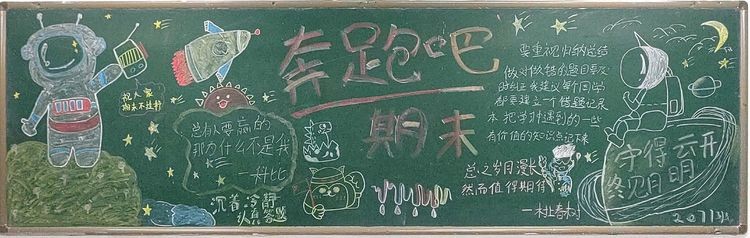 奔跑吧
期末
祝大家
期末不挂科
总有人要赢的
那为什么不是我
一科比
沉着冷静
认真答题
要重视归纳总结
做对做错的题目要及
时纠正我建议每个同学
都要建立一个错题记录
本把学习中遇到的一些
有价值的知识点记下来
总之岁月漫长
然而值得期待
一村上春树
守得云开
终见月明